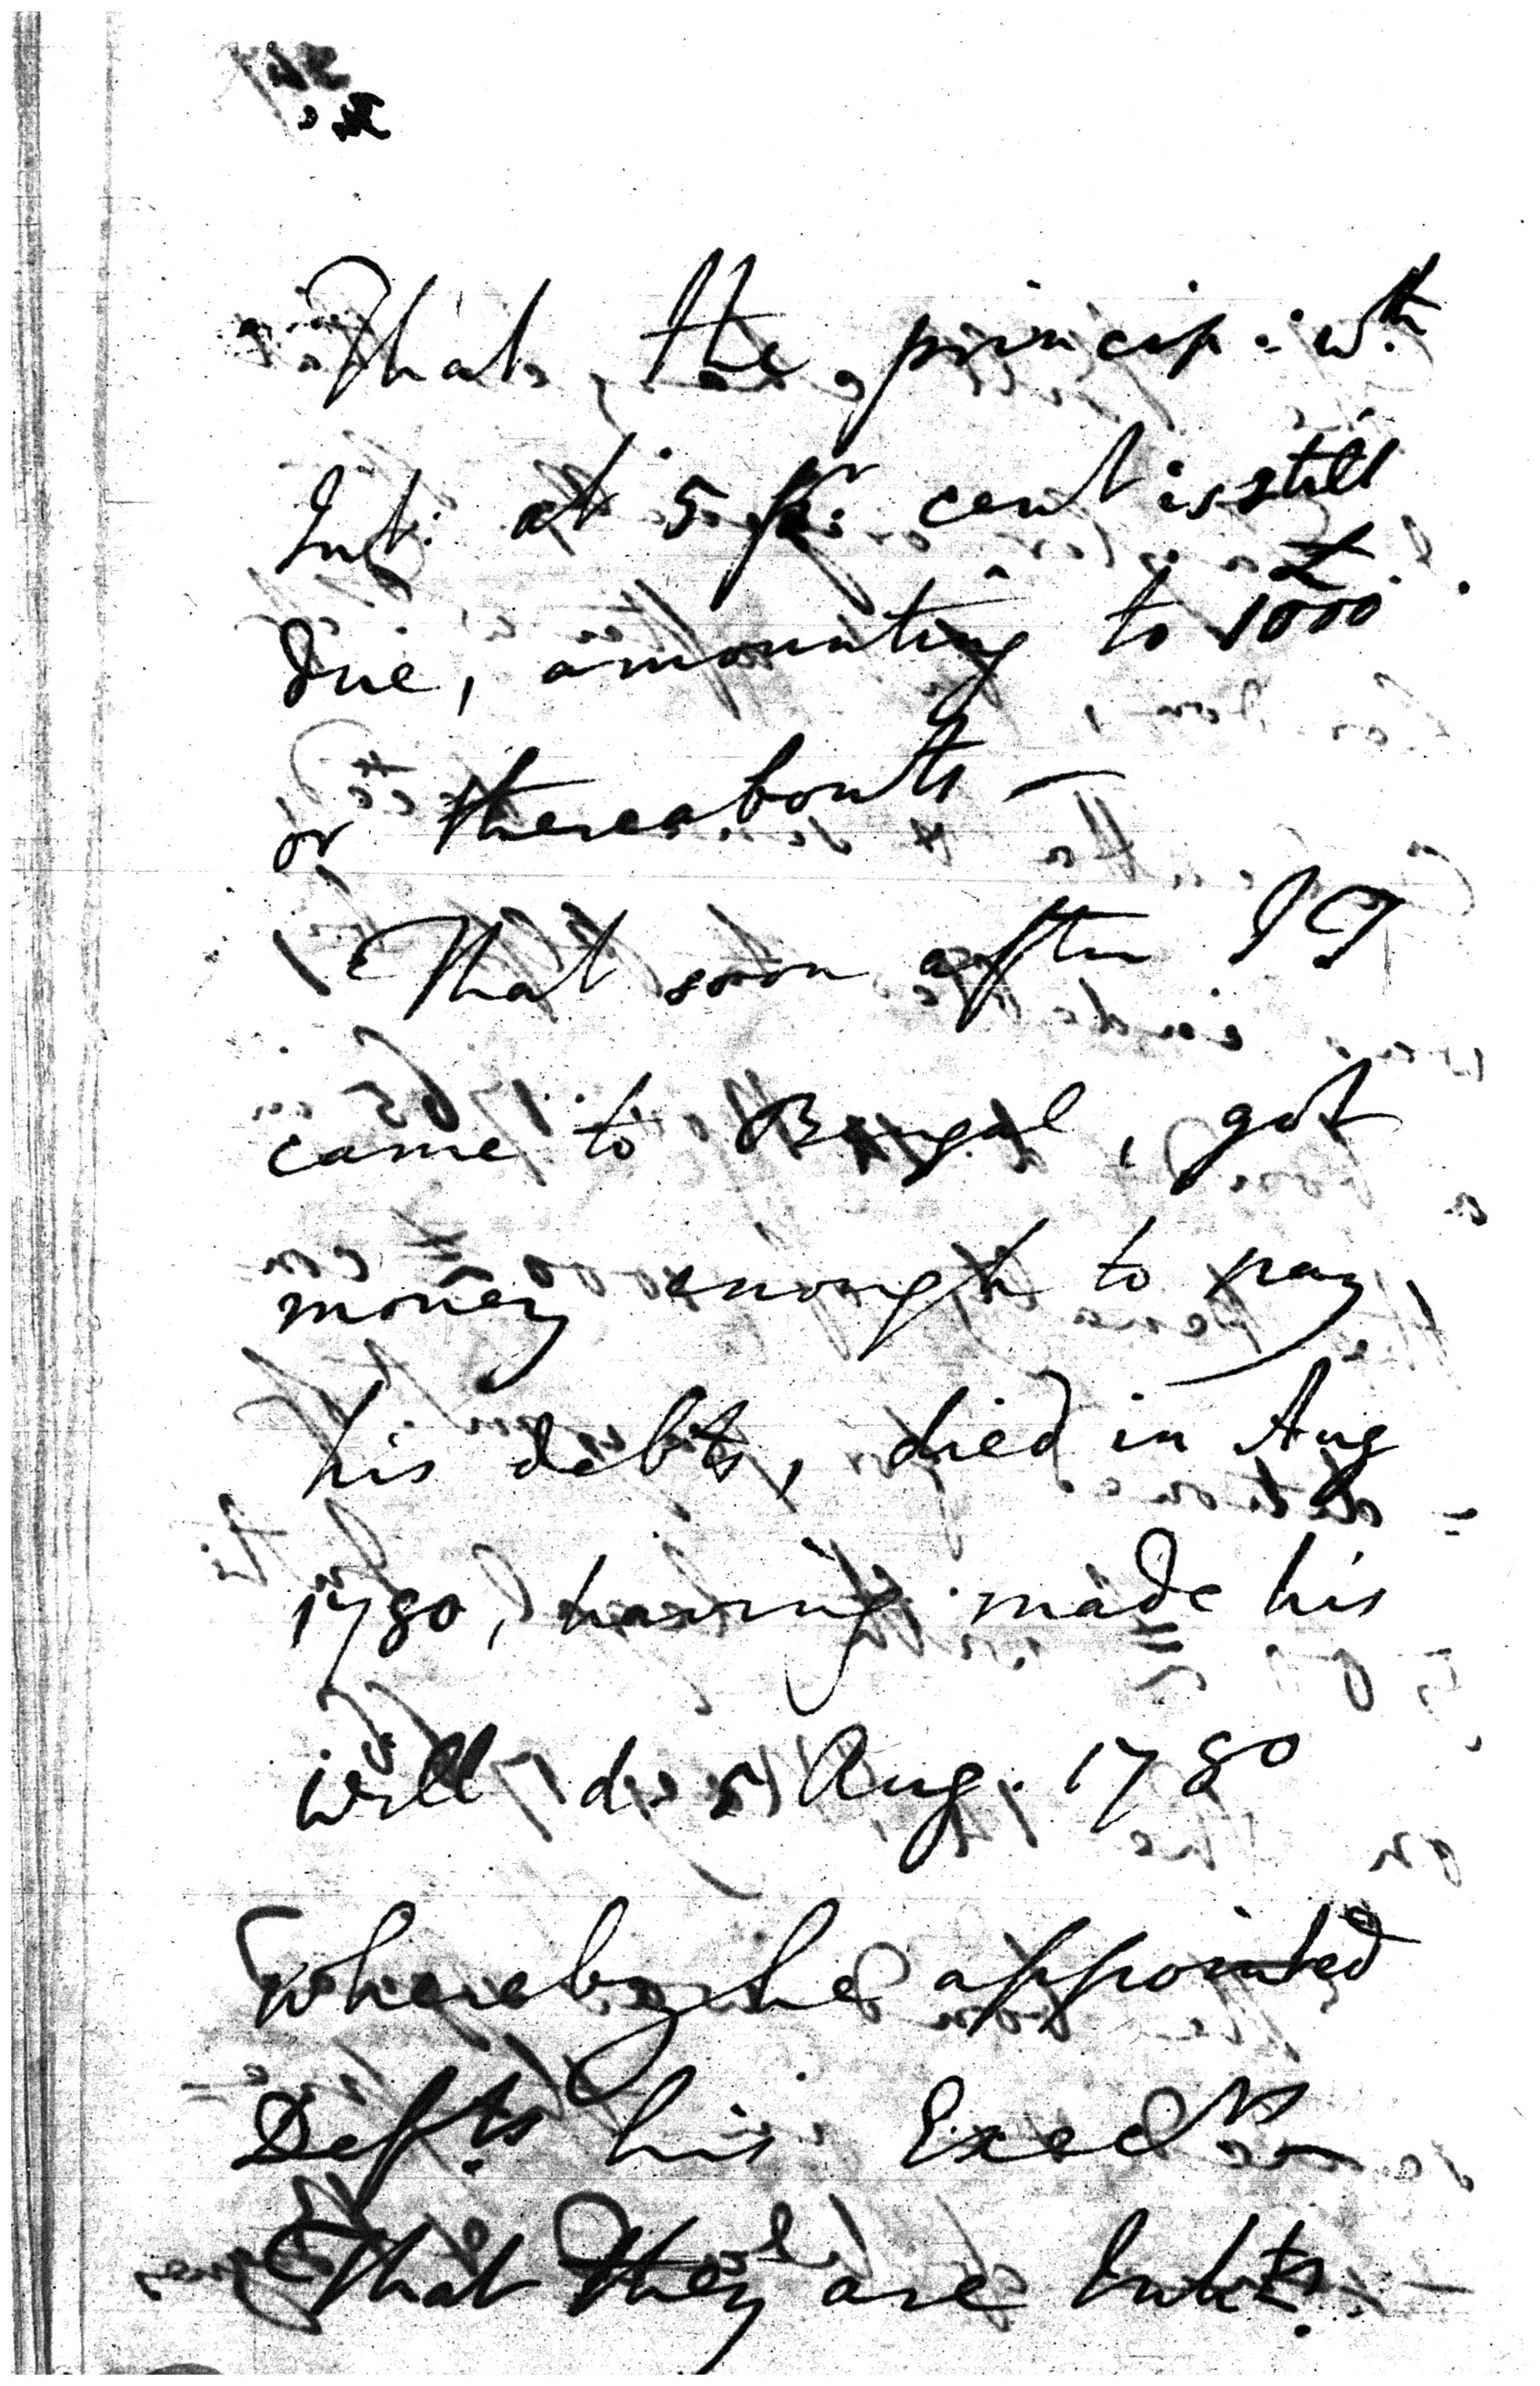 That, the princip: wth
Int: at 5 pr cent is still
due, amounting to £1000
or thereabouts —
That soon after I T
came to Bengal, got
money enough to pay
his debts, died in Aug
1780, having made his
will d. 5 Aug. 1780
whereby he appointed
Defts. his Exec
That they are Inhts.